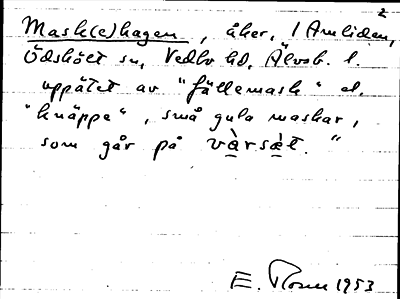 2
Mask(e)hagen, åker, 1 Amliden,
Ödskölt sn, Vedbo hd, Älvsb. l.
uppätet av "fällemask" el.
"knäppe", små gula maskar,
som går på vàrsæ̀t."
E. 1953